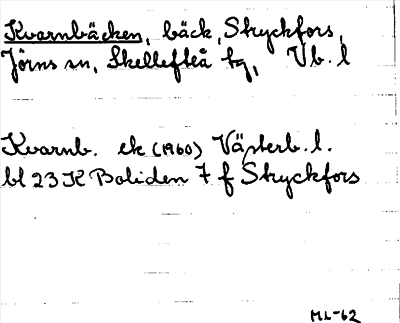 Kvarnbäcken, bäck, Stryckfors,
Jörns sn, Skellefteå tg, Vb. l
Kvarnb. ek (1960) Västerb. l.
bl 23 K Boliden 7 f Stryckfors
ML-62